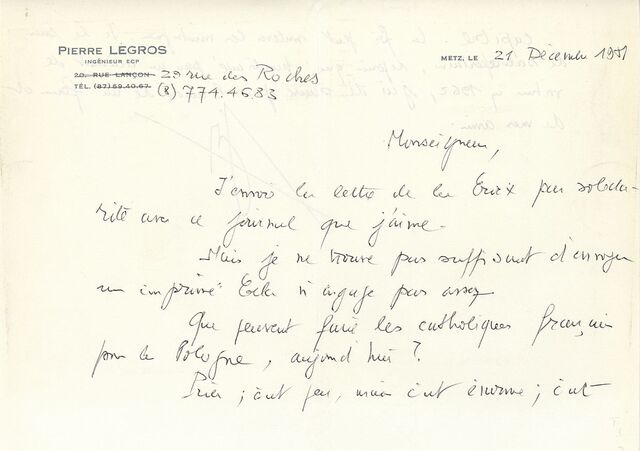 PIERRE LEGROS
INGÉNIEUR ECP
20, RUE LANÇON 29 rue des Roches
TÉL. (87) 69.40.67 (8) 774.46.83
METZ, LE 21 Décembre 1981
Monseigneur,
J'envoie la lettre de la Croix par solida-
rité avec ce journal que j'aime.
Mais je ne trouve pas suffisant d'envoyer
un imprimé. Cela n'engage pas assez
Que peuvent faire les catholiques français
pour la Pologne, aujourd'hui ?
Prier ; c'est peu, mais c'est énorme ; c'est